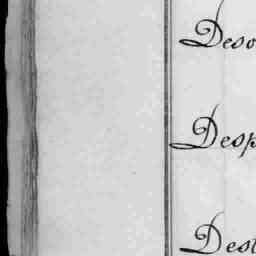 Deso
Desp
Dest